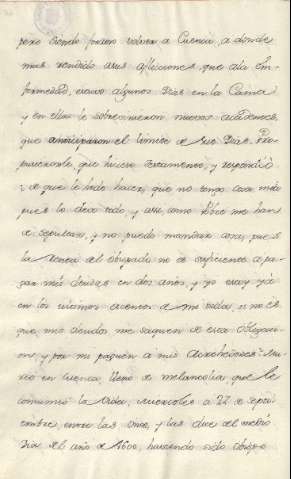 pero siendo forzoso volver a Cuenca, a donde
mas rendido a sus aflicciones, que a la En-
fermedad, estuvo algunos Dias en la Cama
y en ella le sobrevinieron nuevos accidentes,
que anticiparon el limite de sus Dias. Pro-
pusieronle, que hiciese testamento, y respondió
de que le he de hacer, que no tengo cosa mia
pues lo debo todo, y assi, como Pobre me han
de sepultar, y no puedo mandar cosa, pues
la renta del obispado no es suficiente a pa-
gar mis deudas en dos años, y yo estoy ya
en los ultimos acentos de mi vida, si no es
que, mis deudos me saquen de esta obligacion
y por mi paguen a mis Acrehedores. Mu-
rio en Cuenca lleno de melancolia, que le
consumió la vida, Miercoles a 22 de septi-
embre, entre las once, y las doce del medio
Dia del año de 1600, haviendo sido obispo